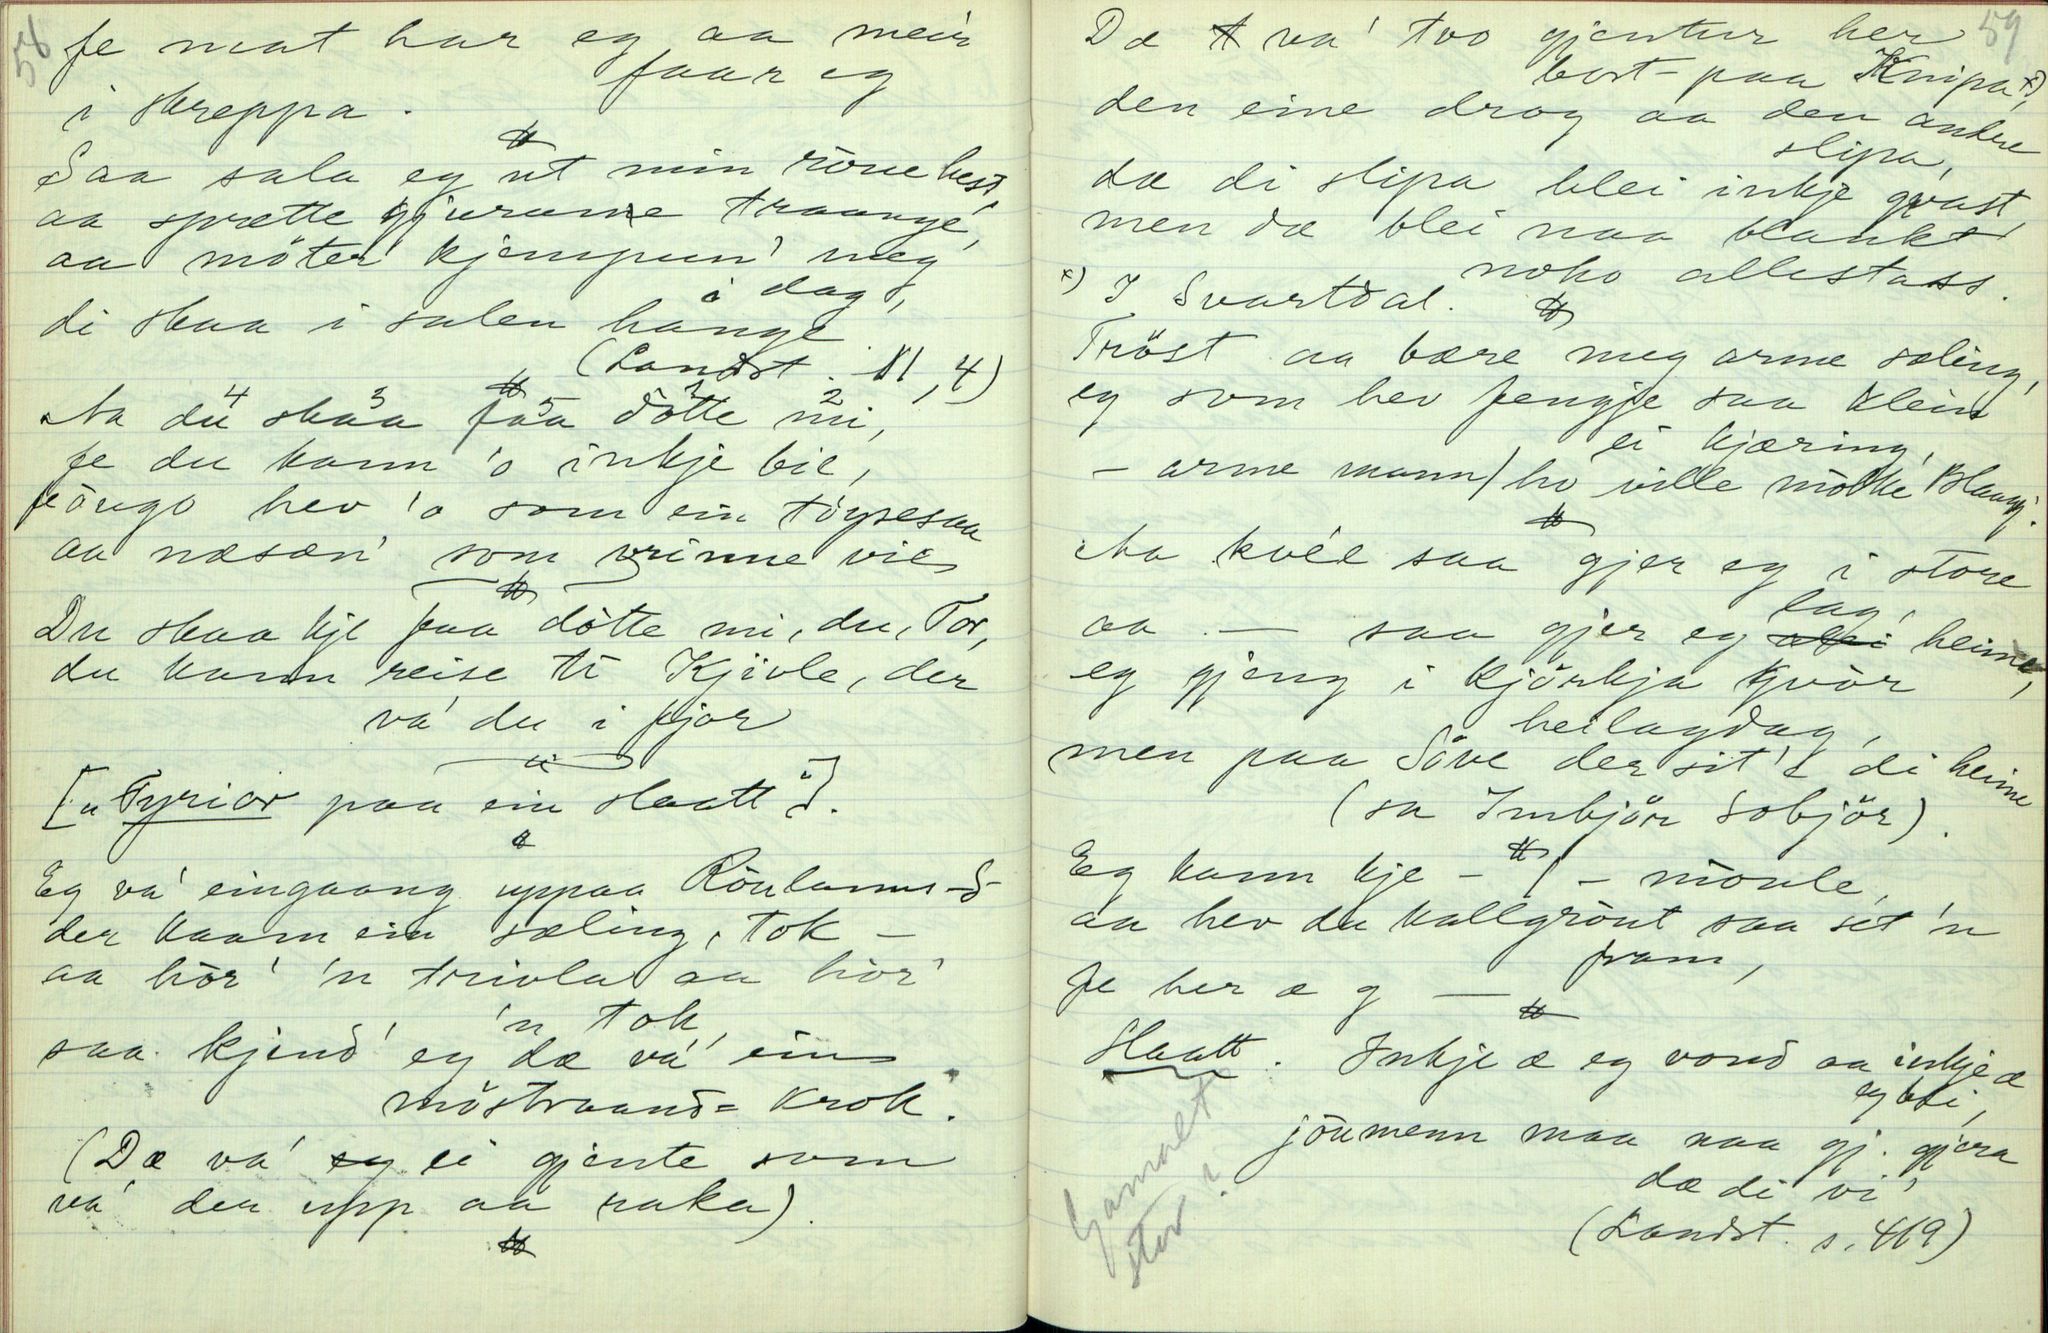 58
fe mat har eg aa meir
faar eg
i skreppa.
Saa sala eg ut min röue hest,
aa sprætte gjurune traange,
aa möter kjempun' meg
i dag,
di skaa i salen hange
(Landst. 11, 4)
Aa du skaa faa dotte mi,
4 3 5 1 2
fe du kann 'o inkje bie,
hev 'o som ein töyresaa
aa næsæn' som vrinne vie
Du skaa kje faa dotte mi, du, Tor,
du kann reise ti Kjivle, der
va' du i fjor
["Fyrior paa ein slaatt"].
Eg va' eingaang uppaa
der kaam ein sæling, tok -
aa hör' 'n trivla aa hör'
'n tok,
saa kjend' eg dæ va' ein
möstraands= krok.
(Dæ va' eg ei gjente som
va' der upp aa raka).
59
Dæ va' tvo gjentur her
bort- paa Knipa x),
den eine drog aa den andre
slipa,
dæ di slipa blei inkje qvast,
men dæ blei naa blankt
noko allestass.
x) I Svartdal.
Tröst aa bære meg arme sæling,
eg som hev fengje saa klein
ei kjæring,
- arme mann / ho ville mólke Blaagj.
Aa kvèl saa gjer eg i store
lag,
aa - saa gjer eg heime,
eg gjeng i kjörkja kjvòr
heilagdag,
men paa Söve der sit' di heime
(sa Imbjör Sobjör).
Eg kann kje - / - móule,
aa hev du kallgröut saa set 'n
fram,
fe her æ g -
Slaatt. Inkje æ eg vond aa inkje æ
eg bli,
jöumenn maa naa gj. gjera
dæ di vi'
(Landst. s. 469)
Gamalt
stev?